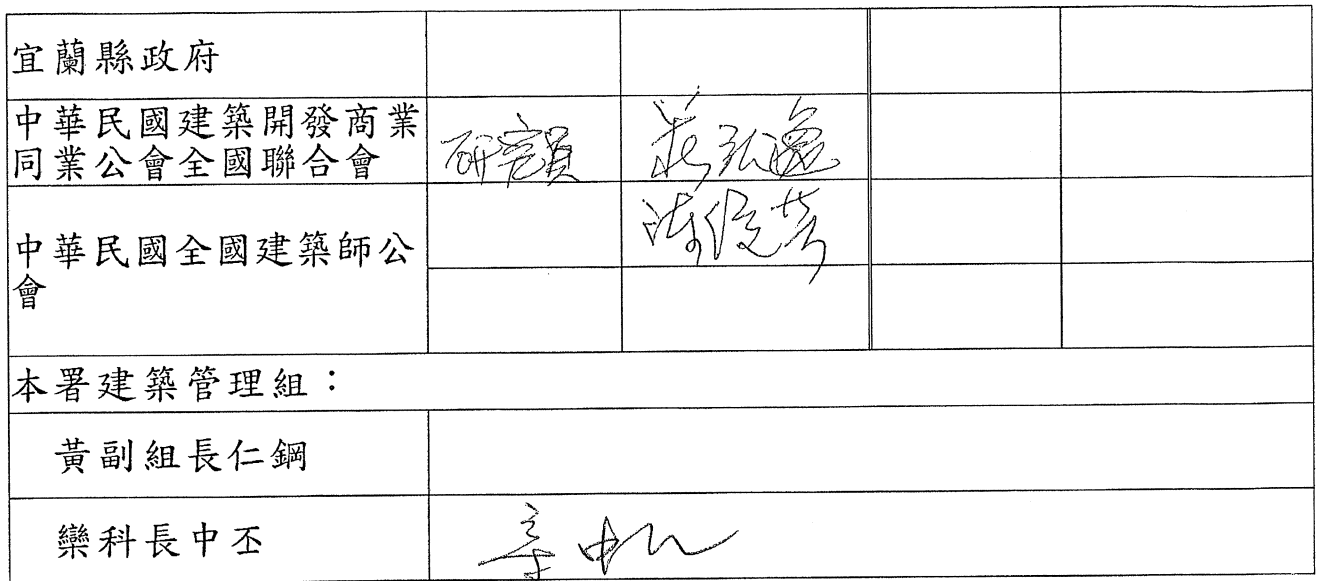 宜蘭縣政府
中華民國建築開發商業
同業公會全國聯合會
研究員
中華民國全國建築師公
會
本署建築管理組：
黃副組長仁鋼
欒科長中丕